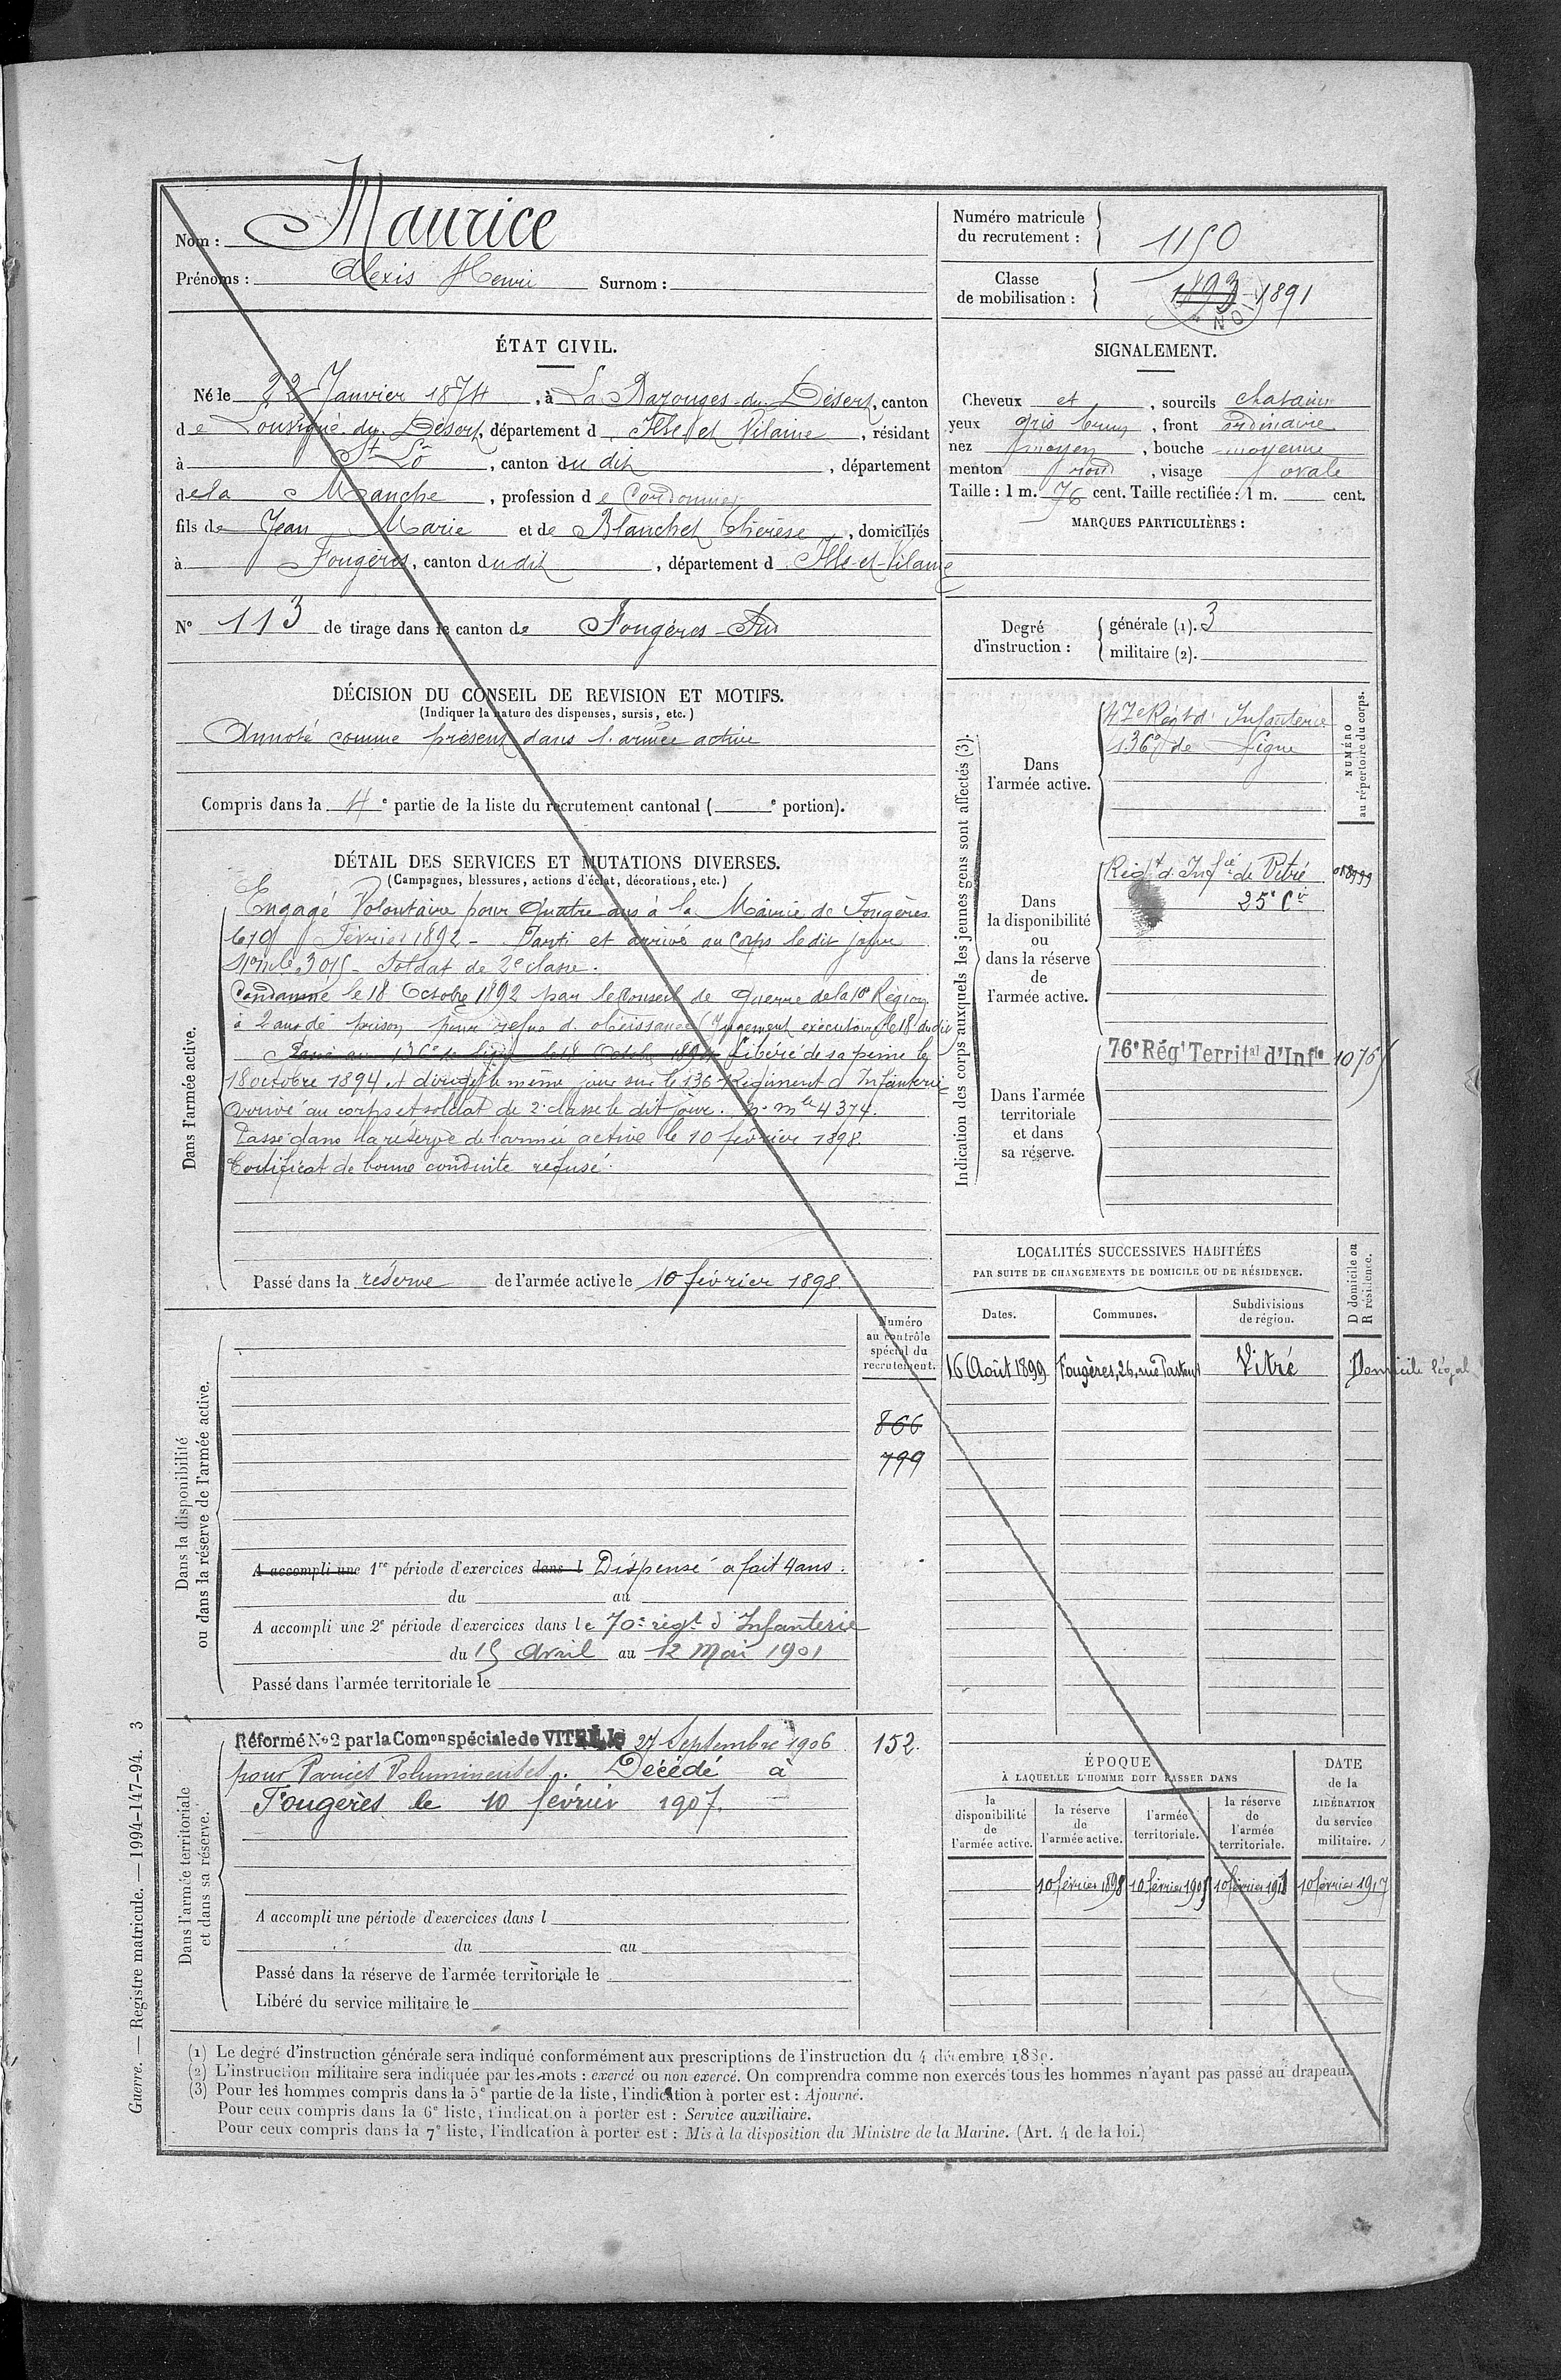 Nom : Maurice
Prénoms : Alexis Henri Surnom :
ÉTAT CIVIL.
Né le 22 Janvier 1874, à La Bazouges-du-Désert, canton
de Louvigné-du-Désert, département d Ille et Vilaine, résidant
à St Lô, canton du dit, département
de la Manche, profession de Cordonnier
fils de Jean Marie et de Blanchet Thérèse, domiciliés
à Fougères, canton dudit, département d Ille-et-Vilaine
No 113 de tirage dans le canton de Fougères-Sud
DÉCISION DU CONSEIL DE REVISION ET MOTIFS.
(Indiquer la nature des dispenses, sursis, etc.)
Annoté comme présent dans l'armée active
Compris dans la 4e partie de la liste du recrutement cantonal ( e portion).
DÉTAIL DES SERVICES ET MUTATIONS DIVERSES.
(Campagnes, blessures, actions d'éclat, décorations, etc.)
Dans l'armée active.
Engagé Volontaire pour quatre ans à la Mairie de Fougères
le 10 Février 1892 - Parti et arrivé au Corps le dit jour
No mle 3015 - Soldat de 2e classe.
Condamné le 18 Octobre 1892 par le Conseil de Guerre de la 10e Région
à 2 ans de prison pour refus d'obéissance (Jugement exécutoire le 18 dudit
Passé au 136e de ligne le 18 Octobre 1894 Libéré de sa peine le
18 octobre 1894 et dirigé le même jour sur le 136 Régiment d'Infanterie
Arrivé au corps et soldat de 2e classe le dit jour. No mle 4374.
Passé dans la réserve de l'armée active le 10 février 1898.
Certificat de bonne conduite refusé.
Passé dans la réserve de l'armée active le 10 février 1898
Dans la disponibilité
ou dans la réserve de l'armée active.
Numéro
au contrôle
spécial du
recrutement.
866
799
A accompli une 1re période d'exercices dans l Dispensé a fait 4 ans.
du au
A accompli une 2e période d'exercices dans le 70e régt d'Infanterie
du 15 Avril au 12 Mai 1901
Passé dans l'armée territoriale le
Dans l'armée territoriale
et dans sa réserve.
Réformé No 2 par la Comon spéciale de VITRÉ le 27 Septembre 1906
152.
pour Décédé à
Fougères le 10 février 1907.
A accompli une période d'exercices dans l
du au
Passé dans la réserve de l'armée territoriale le
Libéré du service militaire le
Numéro matricule
du recrutement : 1150
Classe
de mobilisation : 1893 1891
SIGNALEMENT.
Cheveux et, sourcils chatains
yeux gris brun, front ordinaire
nez moyen, bouche moyenne
menton rond, visage ovale
Taille : 1 m. 76 cent. Taille rectifiée : 1 m. cent.
MARQUES PARTICULIÈRES :
Degré
d'instruction :
générale (1). 3
militaire (2).
Indication des corps auxquels les jeunes gens sont affectés (3).
NUMÉRO
au répertoire du corps.
Dans
l'armée active.
47e Régt d'Infanterie
136e de Ligne
Dans
la disponibilité
ou
dans la réserve
de
l'armée active.
Régt d'Infie de Vitré
25e Cie
Dans l'armée
territoriale
et dans
sa réserve.
76e Régt Territal d'Infie
LOCALITÉS SUCCESSIVES HABITÉES
PAR SUITE DE CHANGEMENTS DE DOMICILE OU DE RÉSIDENCE.
Dates. Communes. Subdivisions
de région. D domicile ou
R résidence.
16 Août 1899 Fougères, 26, rue Pasteur Vitré Domicile légal
ÉPOQUE
À LAQUELLE L'HOMME DOIT PASSER DANS
la
disponibilité
de
l'armée active.
la réserve
de
l'armée active.
l'armée
territoriale.
la réserve
de
l'armée
territoriale.
DATE
de la
LIBÉRATION
du service
militaire.
10 février 1898 10 février 1905 10 février 1911 10 février 1917
(1) Le degré d'instruction générale sera indiqué conformément aux prescriptions de l'instruction du 4 décembre
(2) L'instruction militaire sera indiquée par les mots : exercé ou non exercé. On comprendra comme non exercés tous les hommes n'ayant pas passé au drapeau.
(3) Pour les hommes compris dans la 5e partie de la liste, l'indication à porter est : Ajourné.
Pour ceux compris dans la 6e liste, l'indication à porter est : Service auxiliaire.
Pour ceux compris dans la 7e liste, l'indication à porter est : Mis à la disposition du Ministre de la Marine. (Art. 4 de la loi.)
Guerre. — Registre matricule. — 1994-147-94. 3